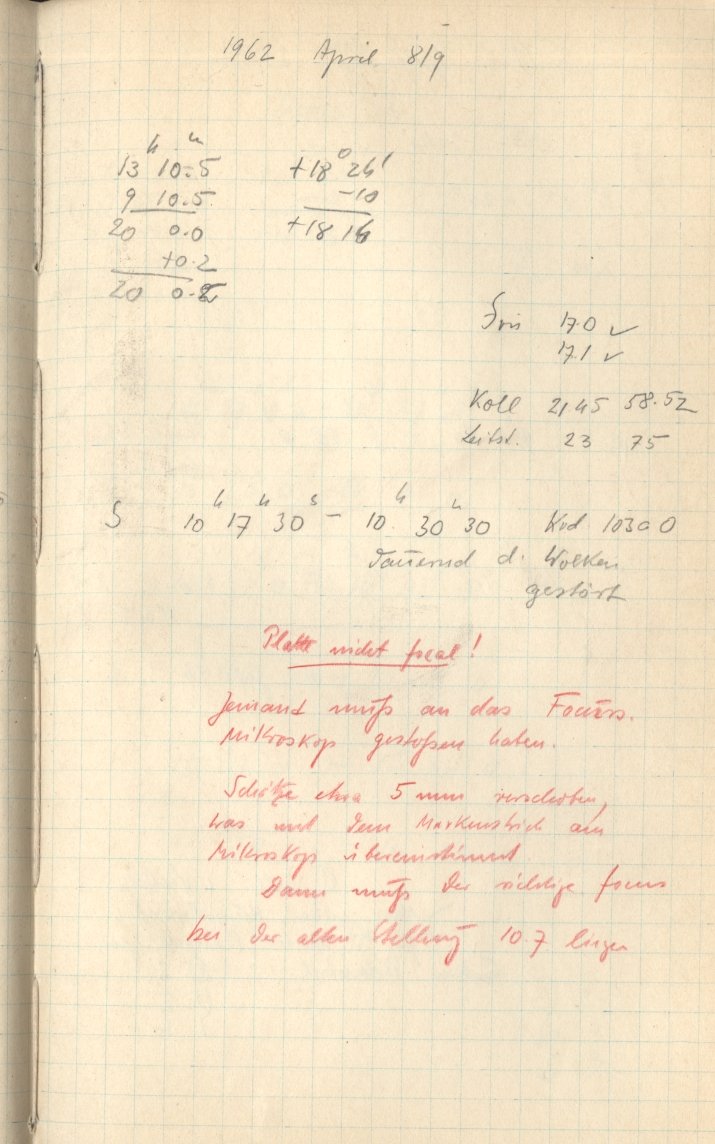 1962 April 8/9
13ʰ 10ᵐ.5 +18° 26'
9 10.5 -10
20 0.0 +18 16
+0.2
20 0.2
Iris 17.0 ✓
17.1 ✓
Koll 21,45 58.52
Leitst. 23 75
S 10ʰ 17ᵐ 30ˢ – 10ʰ 30ᵐ 30 Kod 103a0
Dauernd d. Wolken
gestört
Platte nicht focal!
Jemand muß an das Focus.
Mikroskop gestoßen haben.
Schätze etwa 5 mm verschoben,
was mit dem Markenstrich am
Mikroskop übereinstimmt
Dann muß der richtige focus
bei der alten Stellung 10.7 liegen